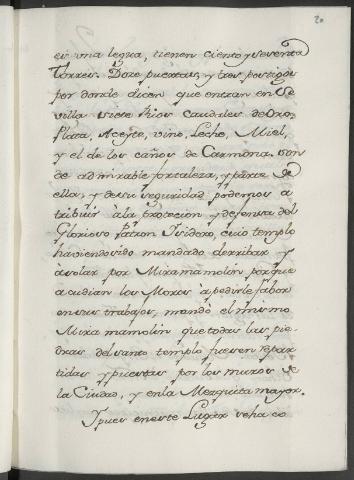 20
es una legua, tienen ciento y seventa
Torres. Doze puertas, y tres postigos
por donde dicen que entran en Se
villa siete Rios Caudales de Oro,
Plata, Aceyte, vino, Leche, Miel,
y el de los caños de Carmona. son
de admirable fortaleza, y parte de
ella, y de su seguridad podemos a
tribuir à la proteccion y defensa del
Glorioso Patron Isidoro, cuio templo
haviendo sido mandado derribar y
asolar por Miramamolin porque
acudian los Moros a pedirle fabor
en sus trabajos, mandó el mismo
Miramamolin que todas las pie
dras del santo templo fuesen repar
tidas y puestas por los muros de
la Ciudad, y en la Mezquita mayor.
Ipues en este Lugar se ha co